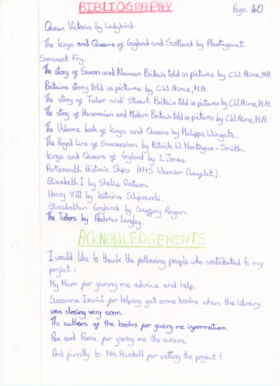 BIBLIOGRAPHY Page 60
Queen Victoria by Ladybird.
The Kings and Queens of England and Scotland by Plantagenet
Somerset Fry.
The story of Saxon and Norman Britain told in pictures by C.W. Airne, M.A.
Britains story told in pictures by C.W. Airne, M.A.
The story of Tudor and Stuart Britain told in pictures by C.W. Airne, M.A.
The story of Hanoverian and Modern Britain told in pictures by C.W. Airne, M.A.
The Usborne book of Kings and Queens by Philippa Wingate.
The Royal Line of Succession by Patrick W. Montague - Smith.
Kings and Queens of England by L. Jones.
Portsmouth Historic Ships (HMS Warrior Pamphlet).
Elizabeth I by
Henry VIII by
Elizabethan England by
The Tudors by Andrew Langley.
ACKNOWLEDGEMENTS
I would like to thank the following people who contributed to my
project:
My Mum for giving me advice and help.
Susanna for helping get some books when the library
was closing very soon.
The authors of the books for giving me information.
for giving me the
And finally to Mrs for setting the project!